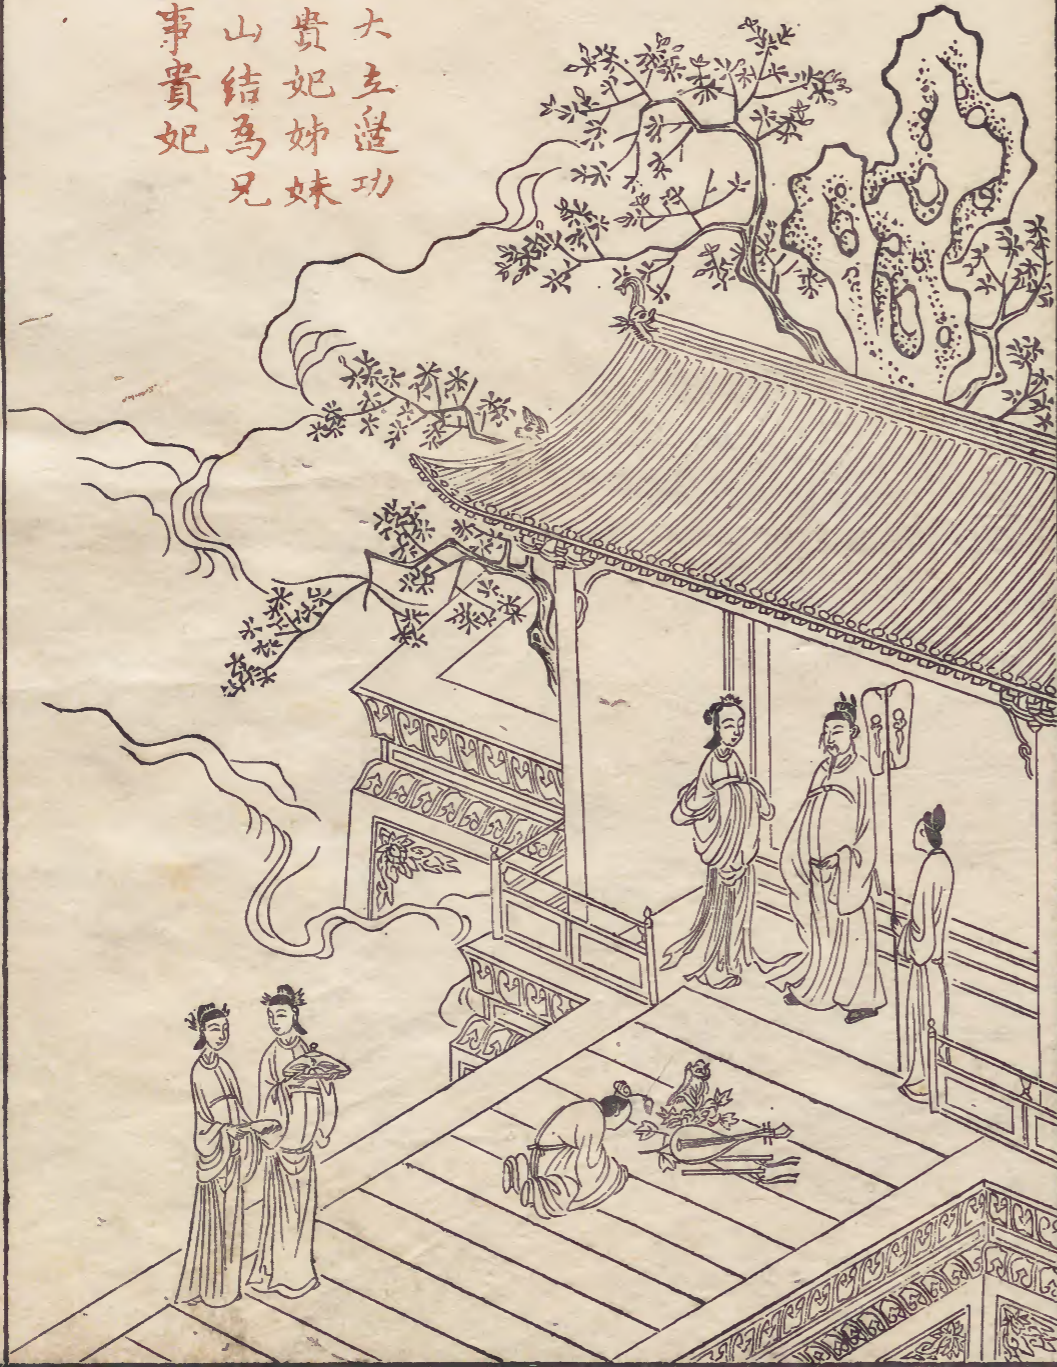 大立邊功
貴妃姊妹
山結為兄
事貴妃